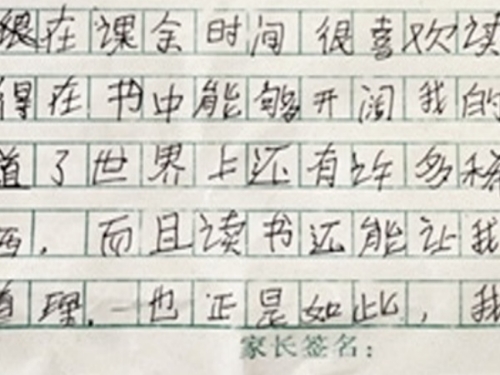 很在课余时间很喜欢读
得在书中能够开阔我的
道了世界上还有许多稀
西，而且读书还能让我
道理.也正是如此，我
家长签名：